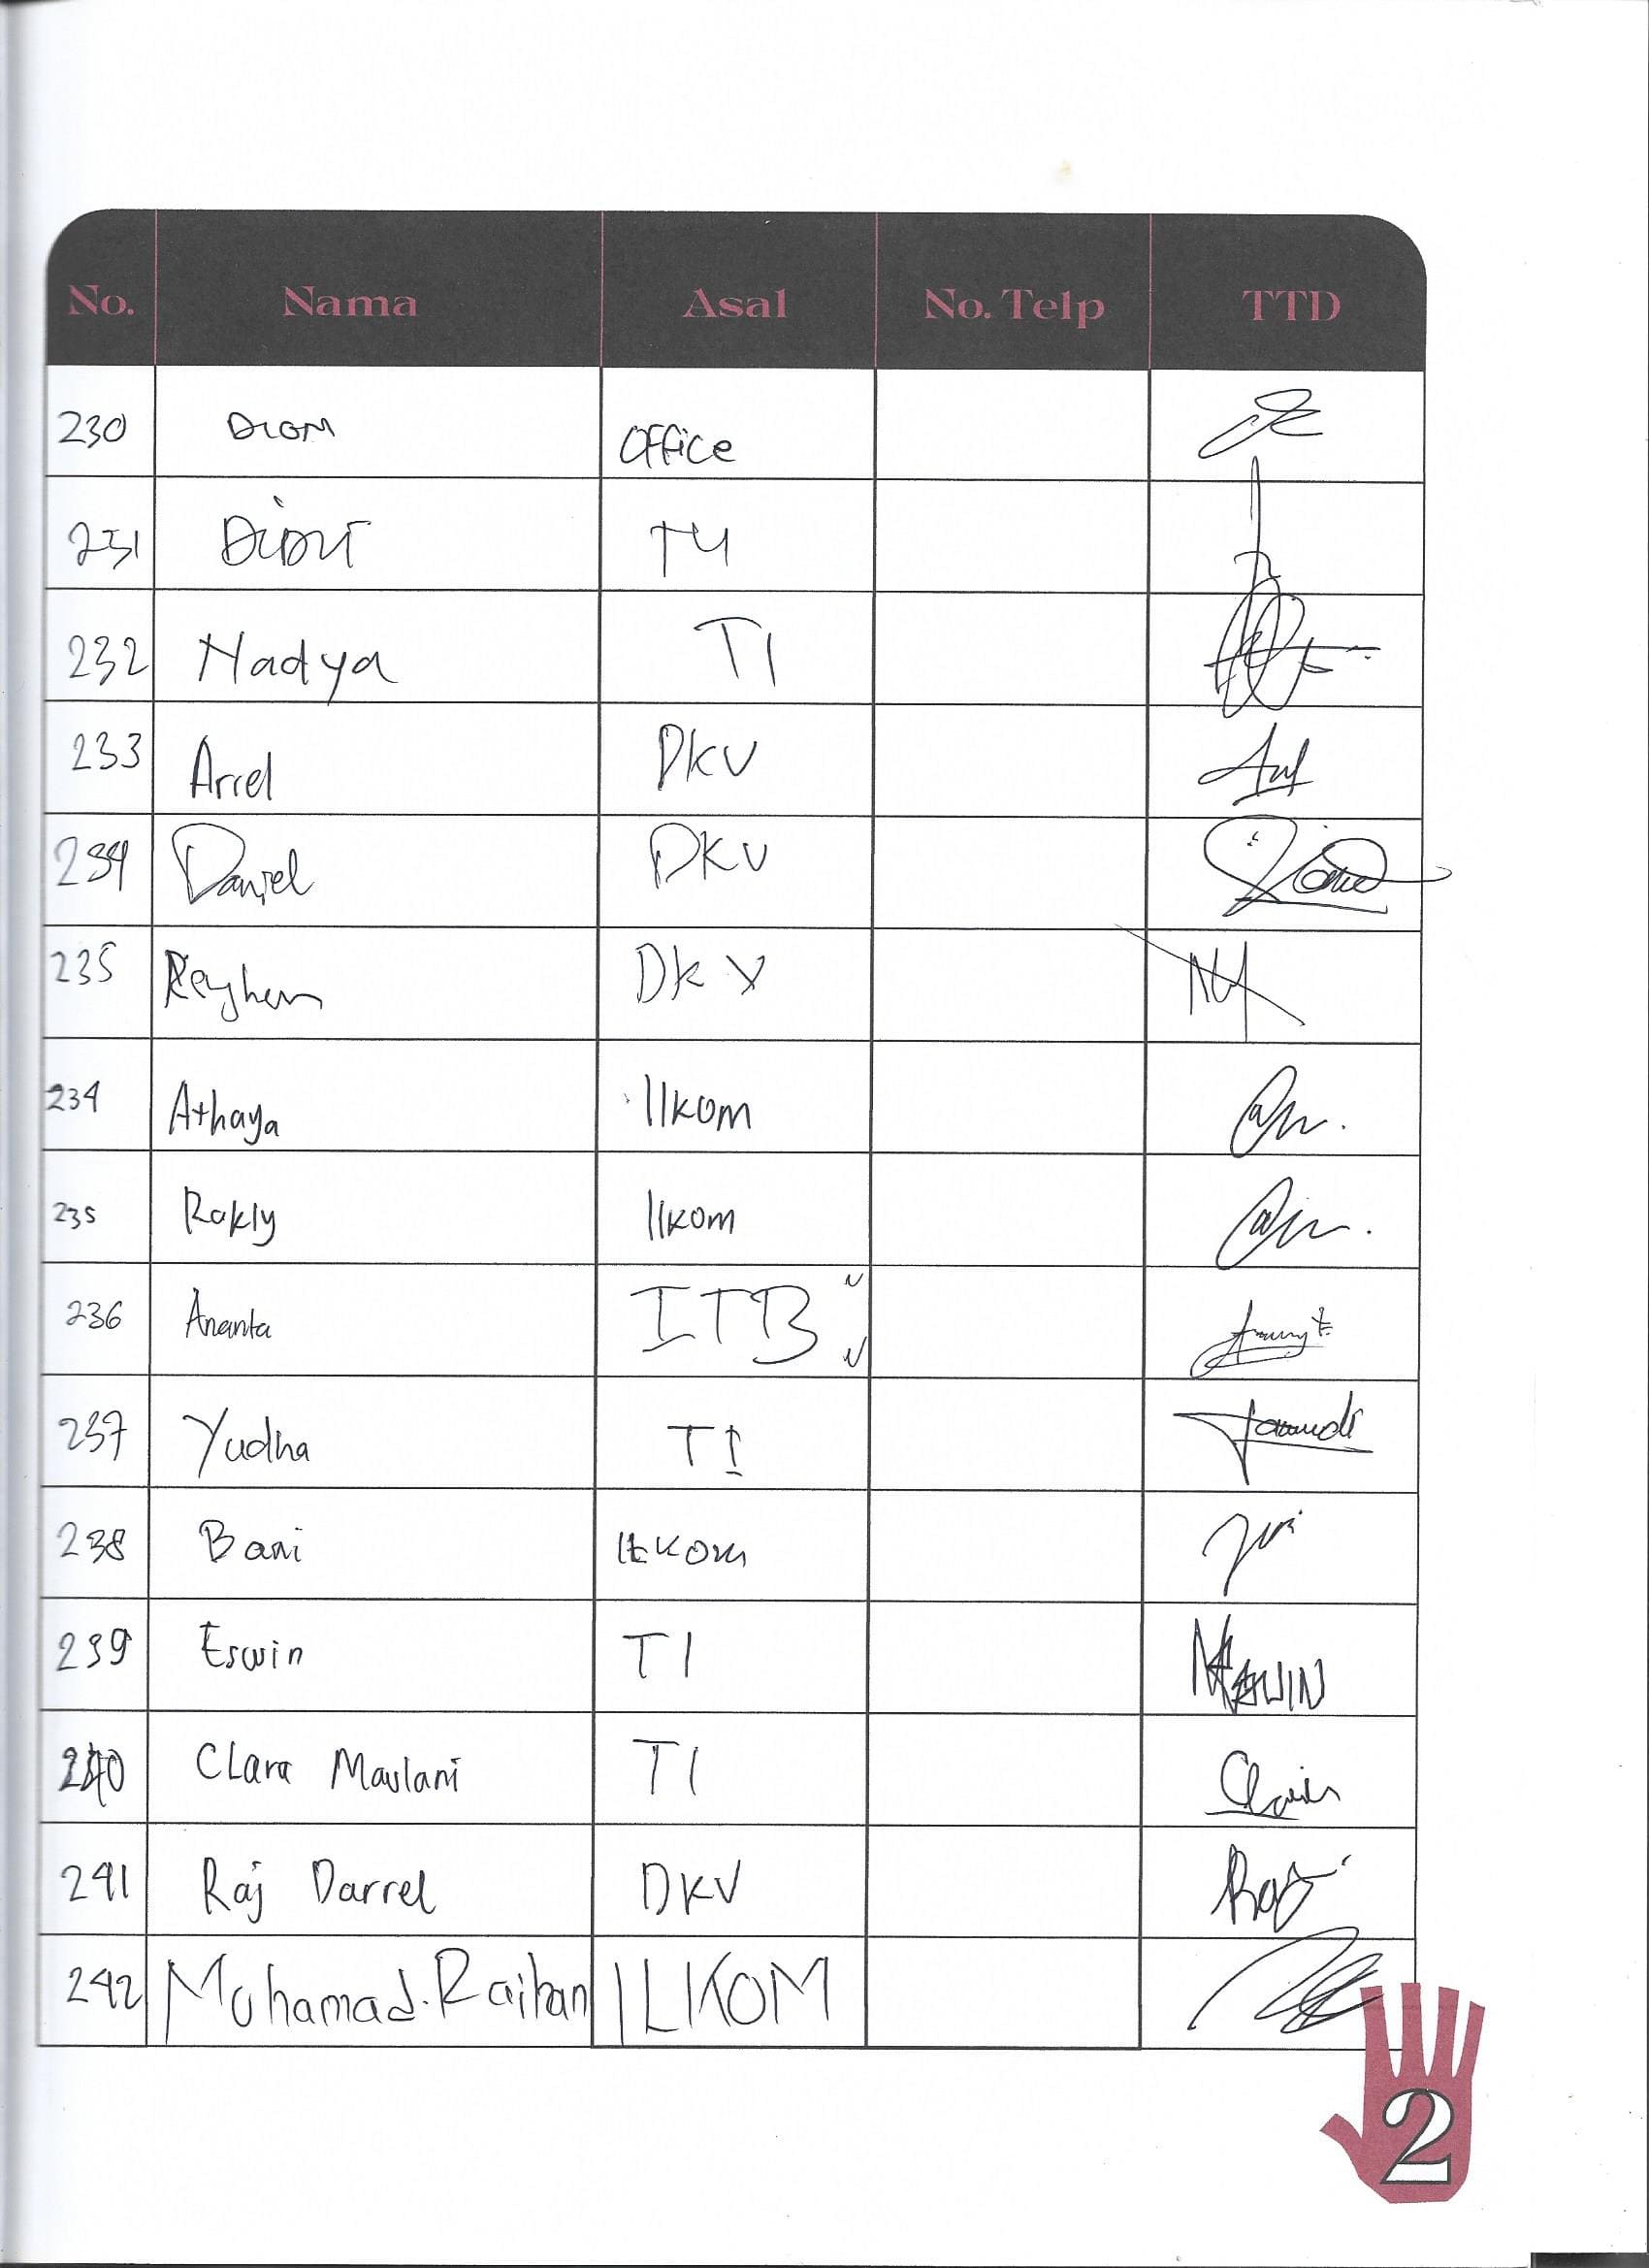 No. Nama Asal No. Telp TTD
230 Dion Office
231
232 Nadya TI
233 Arrel DKV
234 Daniel DKV
235 Reyhan DKV
234 Athaya Ilkom
235 Rakly Ilkom
236 Ananta ITB
237 Yudha TI
238 Bani Ilkom
239 Eswin TI
240 Clara Maulani TI
241 Raj Darrel DKV
242 Mohamad.Raihan ILKOM
2